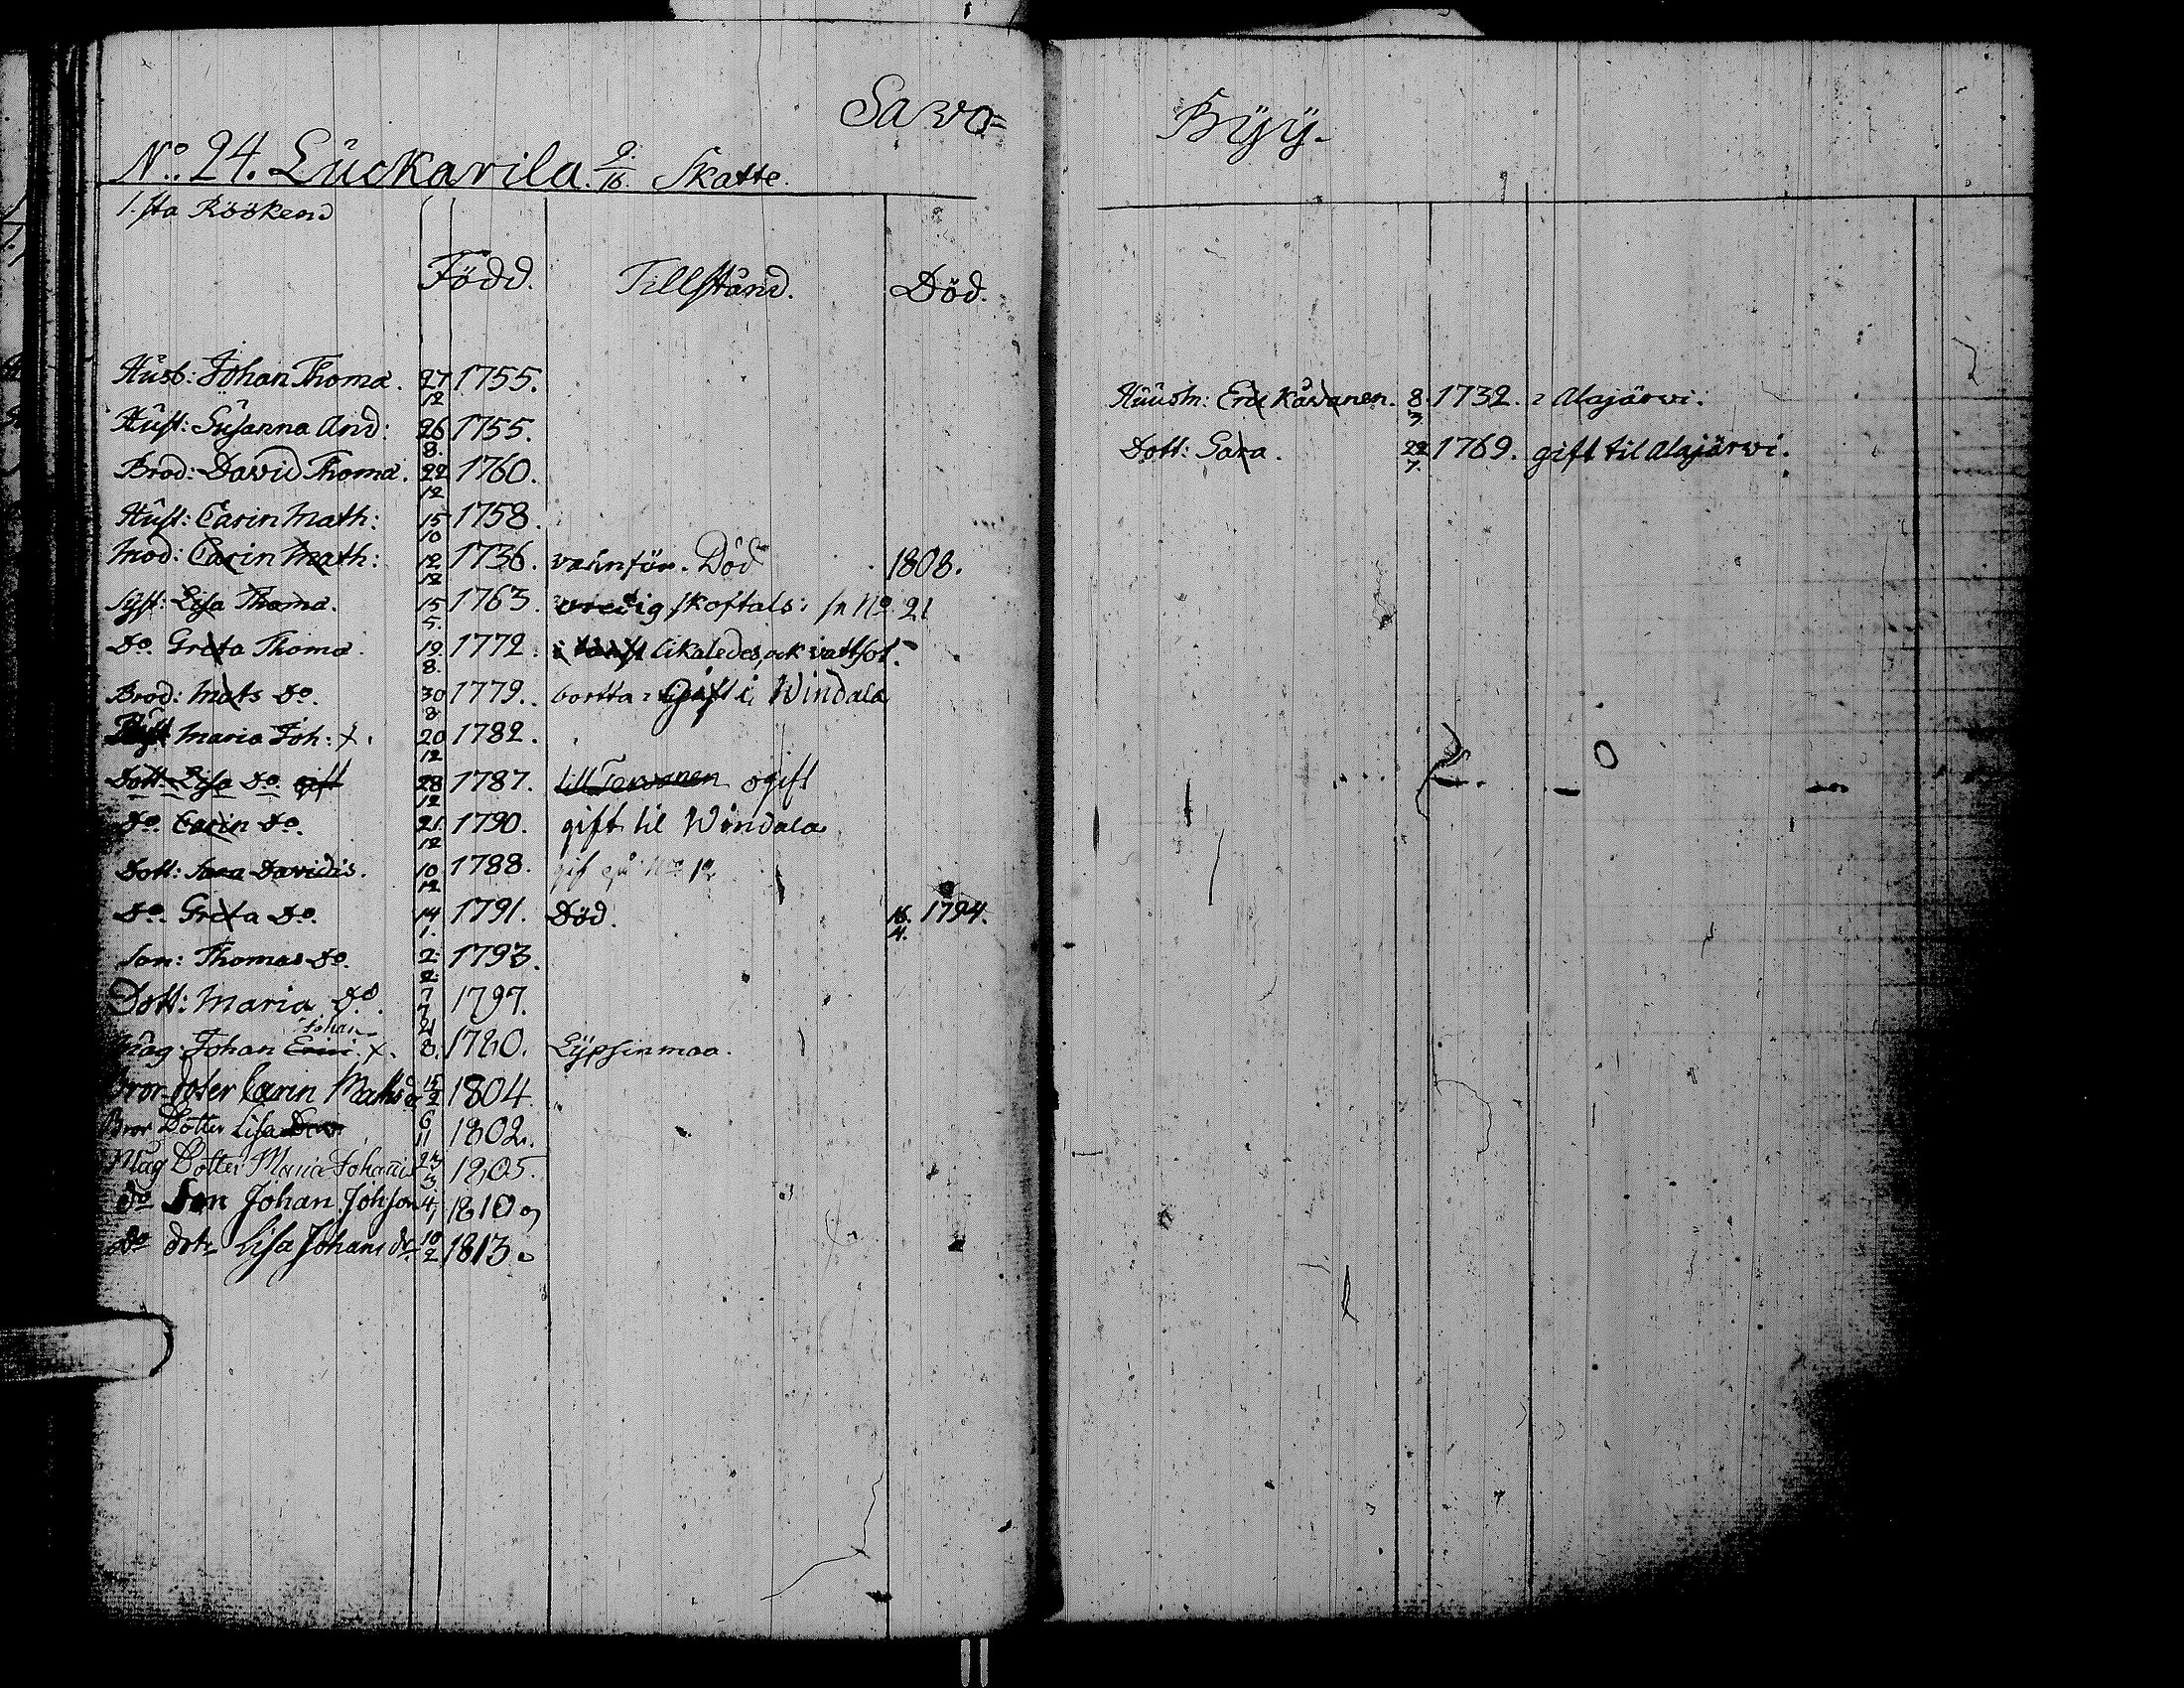 Savo=
No: 24. Luckarila. 9/16 Skatte.
1.sta Röökend
Född. Tillstånd. Död.
Husb: Johan Thomæ. 27/12 1755.
Hust: Susanna And: 26/8. 1755.
Brod: David Thomæ. 22/12 1760.
Hust: Carin Math: 15/10 1758.
Mod: Carin Math: 12/12 1736. vanför. Död 1808.
Syst: Lisa Thomæ. 15/5. 1763. 21
Do. Greta Thomæ. 19/8. 1772. likaledes, ock vattsot.
Brod: Mats Do. 30/8 1779. bortta Gift i Windala
Maria Joh: +. 20/12 1782.
Dott: Lisa Do gift 28/12 1787. till ogift
Do. Carin Do. 21/12 1790. gift til Windala
Dott: Sara Davidis. 10/12 1788. gif på No 12
Do. Greta Do. 14/1. 1791. Död. 16./4. 1794.
Son: Thomas Do. 2/2 1793.
Dott: Maria Do. 7/7 1797.
Johan
Måg: Johan Erici +. 21/8. 1780. Lypsinmaa.
Bror doter Carin Matsd 15/2 1804
Bror Dotter Lisa 6/11 1802.
Måg Dotter Maria Johanis 23/3 1805.
do Son Johan Johson 4/1 1810
do dotr Lisa Johans dr 10/2 1813
Byy.
Huusm: Eric Kåvanen. 8/3 1732. Alajärvi.
Dott: Sara. 22/7. 1769. gift til Alajärvi.